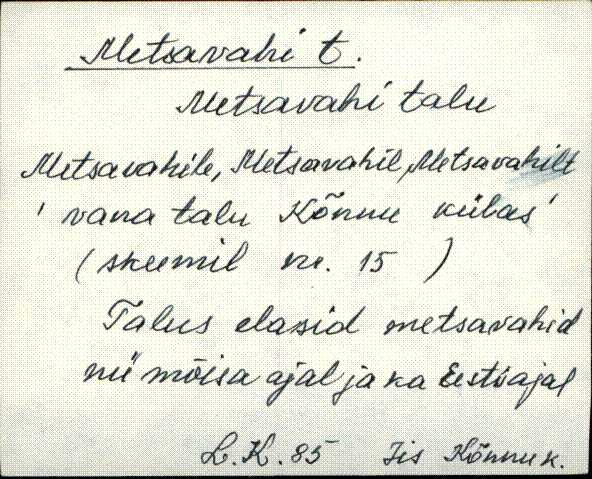 Metsavahi t.
Metsavahi talu
Metsavahile, Metsavahil, Metsavahilt
'vana talu Kõnnu külas'
(skeemil nr. 15 )
Talus elasid metsavahid
nii mõisa ajal ja ka Eesti ajal
L.K. 85 Iis Kõnnu k.